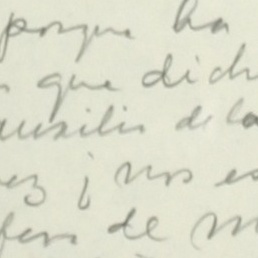 porque ha
que dich
auxilio de la
vez ¡ nos es
de m